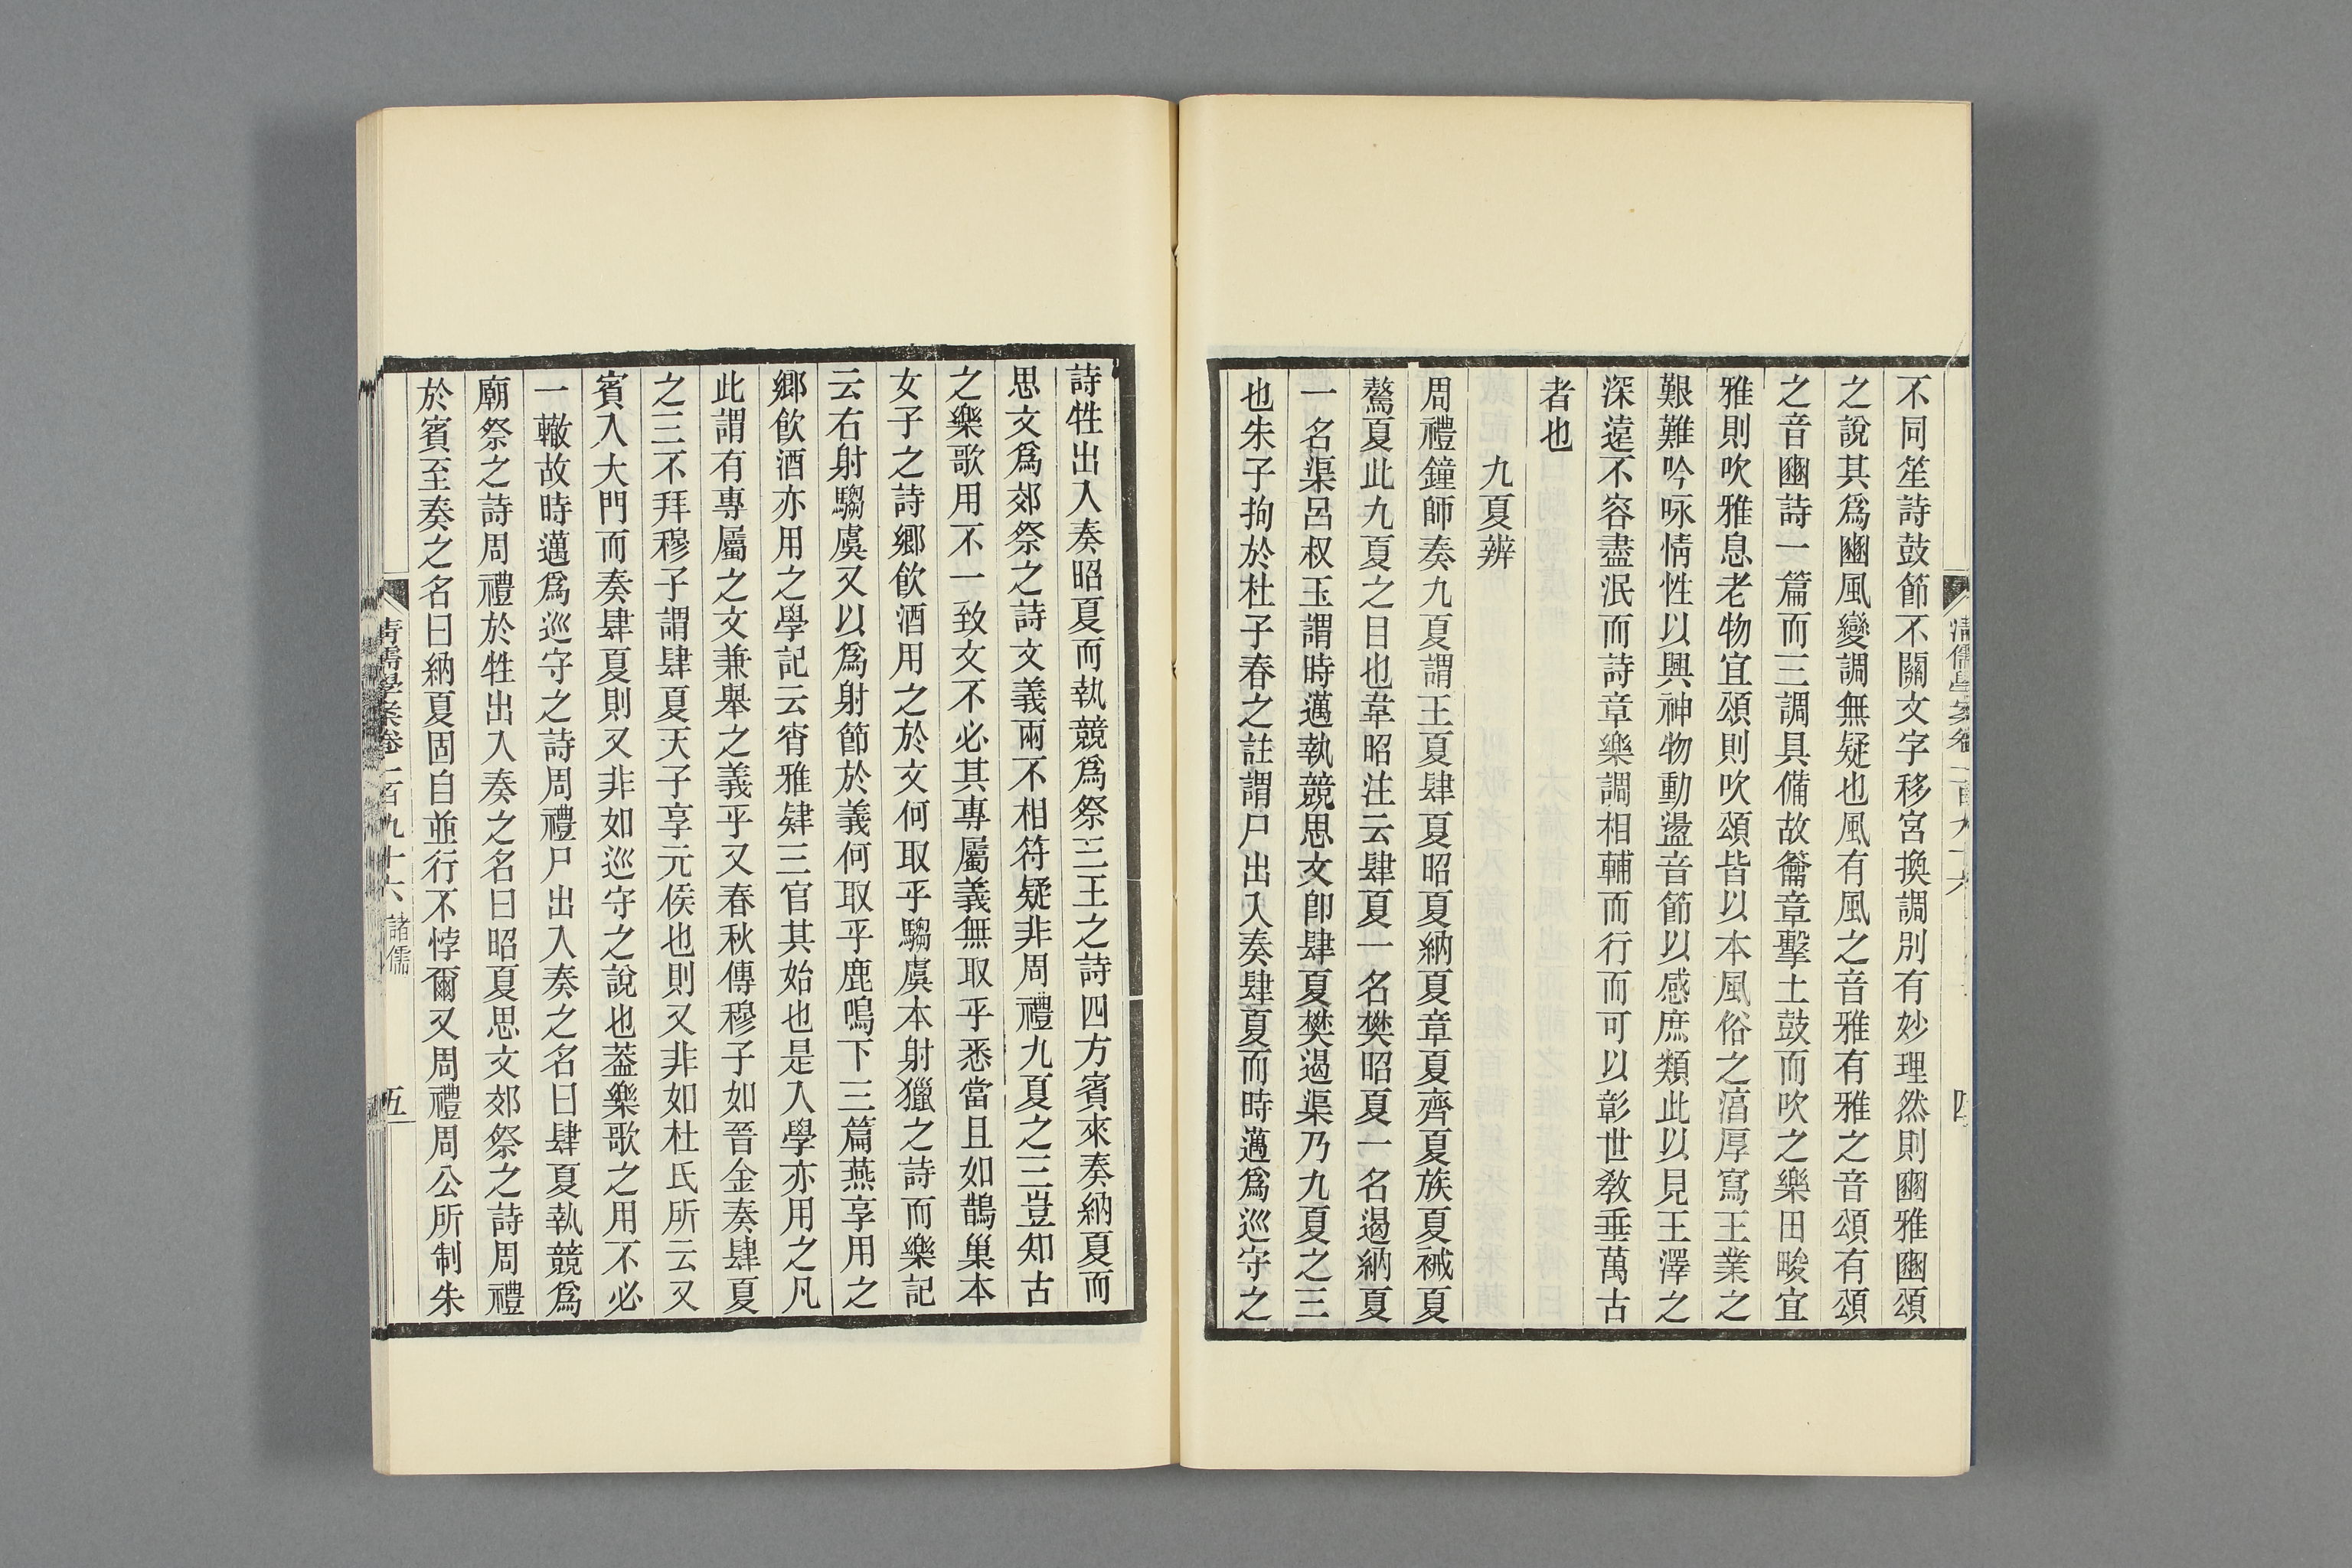 不同笙詩鼓節不關文字移宮換調別有妙理然則豳雅豳頌
之說其爲豳風變調無疑也風有風之音雅有雅之音頌有頌
之音豳詩一篇而三調具備故籥章擊土鼓而吹之樂田畯宜
雅則吹雅息老物宜頌則吹頌皆以本風俗之湻厚寫王業之
艱難吟咏情性以興神物動盪音節以感庶類此以見王澤之
深遠不容盡泯而詩章樂調相輔而行而可以彰世敎垂萬古
者也
九夏辨
周禮鐘師奏九夏謂王夏肆夏昭夏納夏章夏齊夏族夏祴夏
驁夏此九夏之目也韋昭注云肆夏一名樊昭夏一名遏納夏
一名渠呂叔玉謂時邁執競思文卽肆夏樊遏渠乃九夏之三
也朱子拘於杜子春之註謂尸出入奏肆夏而時邁爲巡守之
詩牲出入奏昭夏而執競爲祭三王之詩四方賓來奏納夏而
思文爲郊祭之詩文義兩不相符疑非周禮九夏之三豈知古
之樂歌用不一致文不必其專屬義無取乎悉當且如鵲巢本
女子之詩鄉飮酒用之於文何取乎騶虞本射獵之詩而樂記
云右射騶虞又以爲射節於義何取乎鹿鳴下三篇燕享用之
鄉飮酒亦用之學記云宵雅肄三官其始也是入學亦用之凡
此謂有專屬之文兼舉之義乎又春秋傳穆子如晉金奏肆夏
之三不拜穆子謂肆夏天子享元侯也則又非如杜氏所云又
賓入大門而奏肆夏則又非如巡守之說也葢樂歌之用不必
一轍故時邁爲巡守之詩周禮尸出入奏之名曰肆夏執競爲
廟祭之詩周禮於牲出入奏之名曰昭夏思文郊祭之詩周禮
於賓至奏之名曰納夏固自並行不悖爾又周禮周公所制朱
清儒學案卷二百九十六 諸儒
五